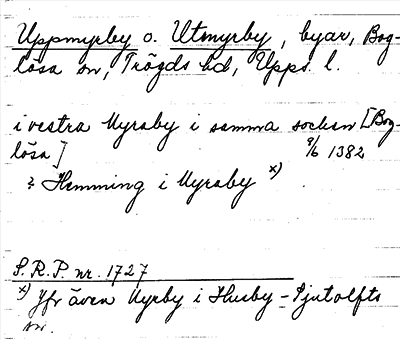 Uppmyrby o. Utmyrby, byar, Bog-
lösa sn, Trögds hd, Upps. l.
i vestra Myraby i samma socken [Bog-
lösa] 9/6 1382
Hemming i Myraby x)
S.R.P. nr. 1727
x) Jfr även Myrby i Husby-Sjutolfts
sn.